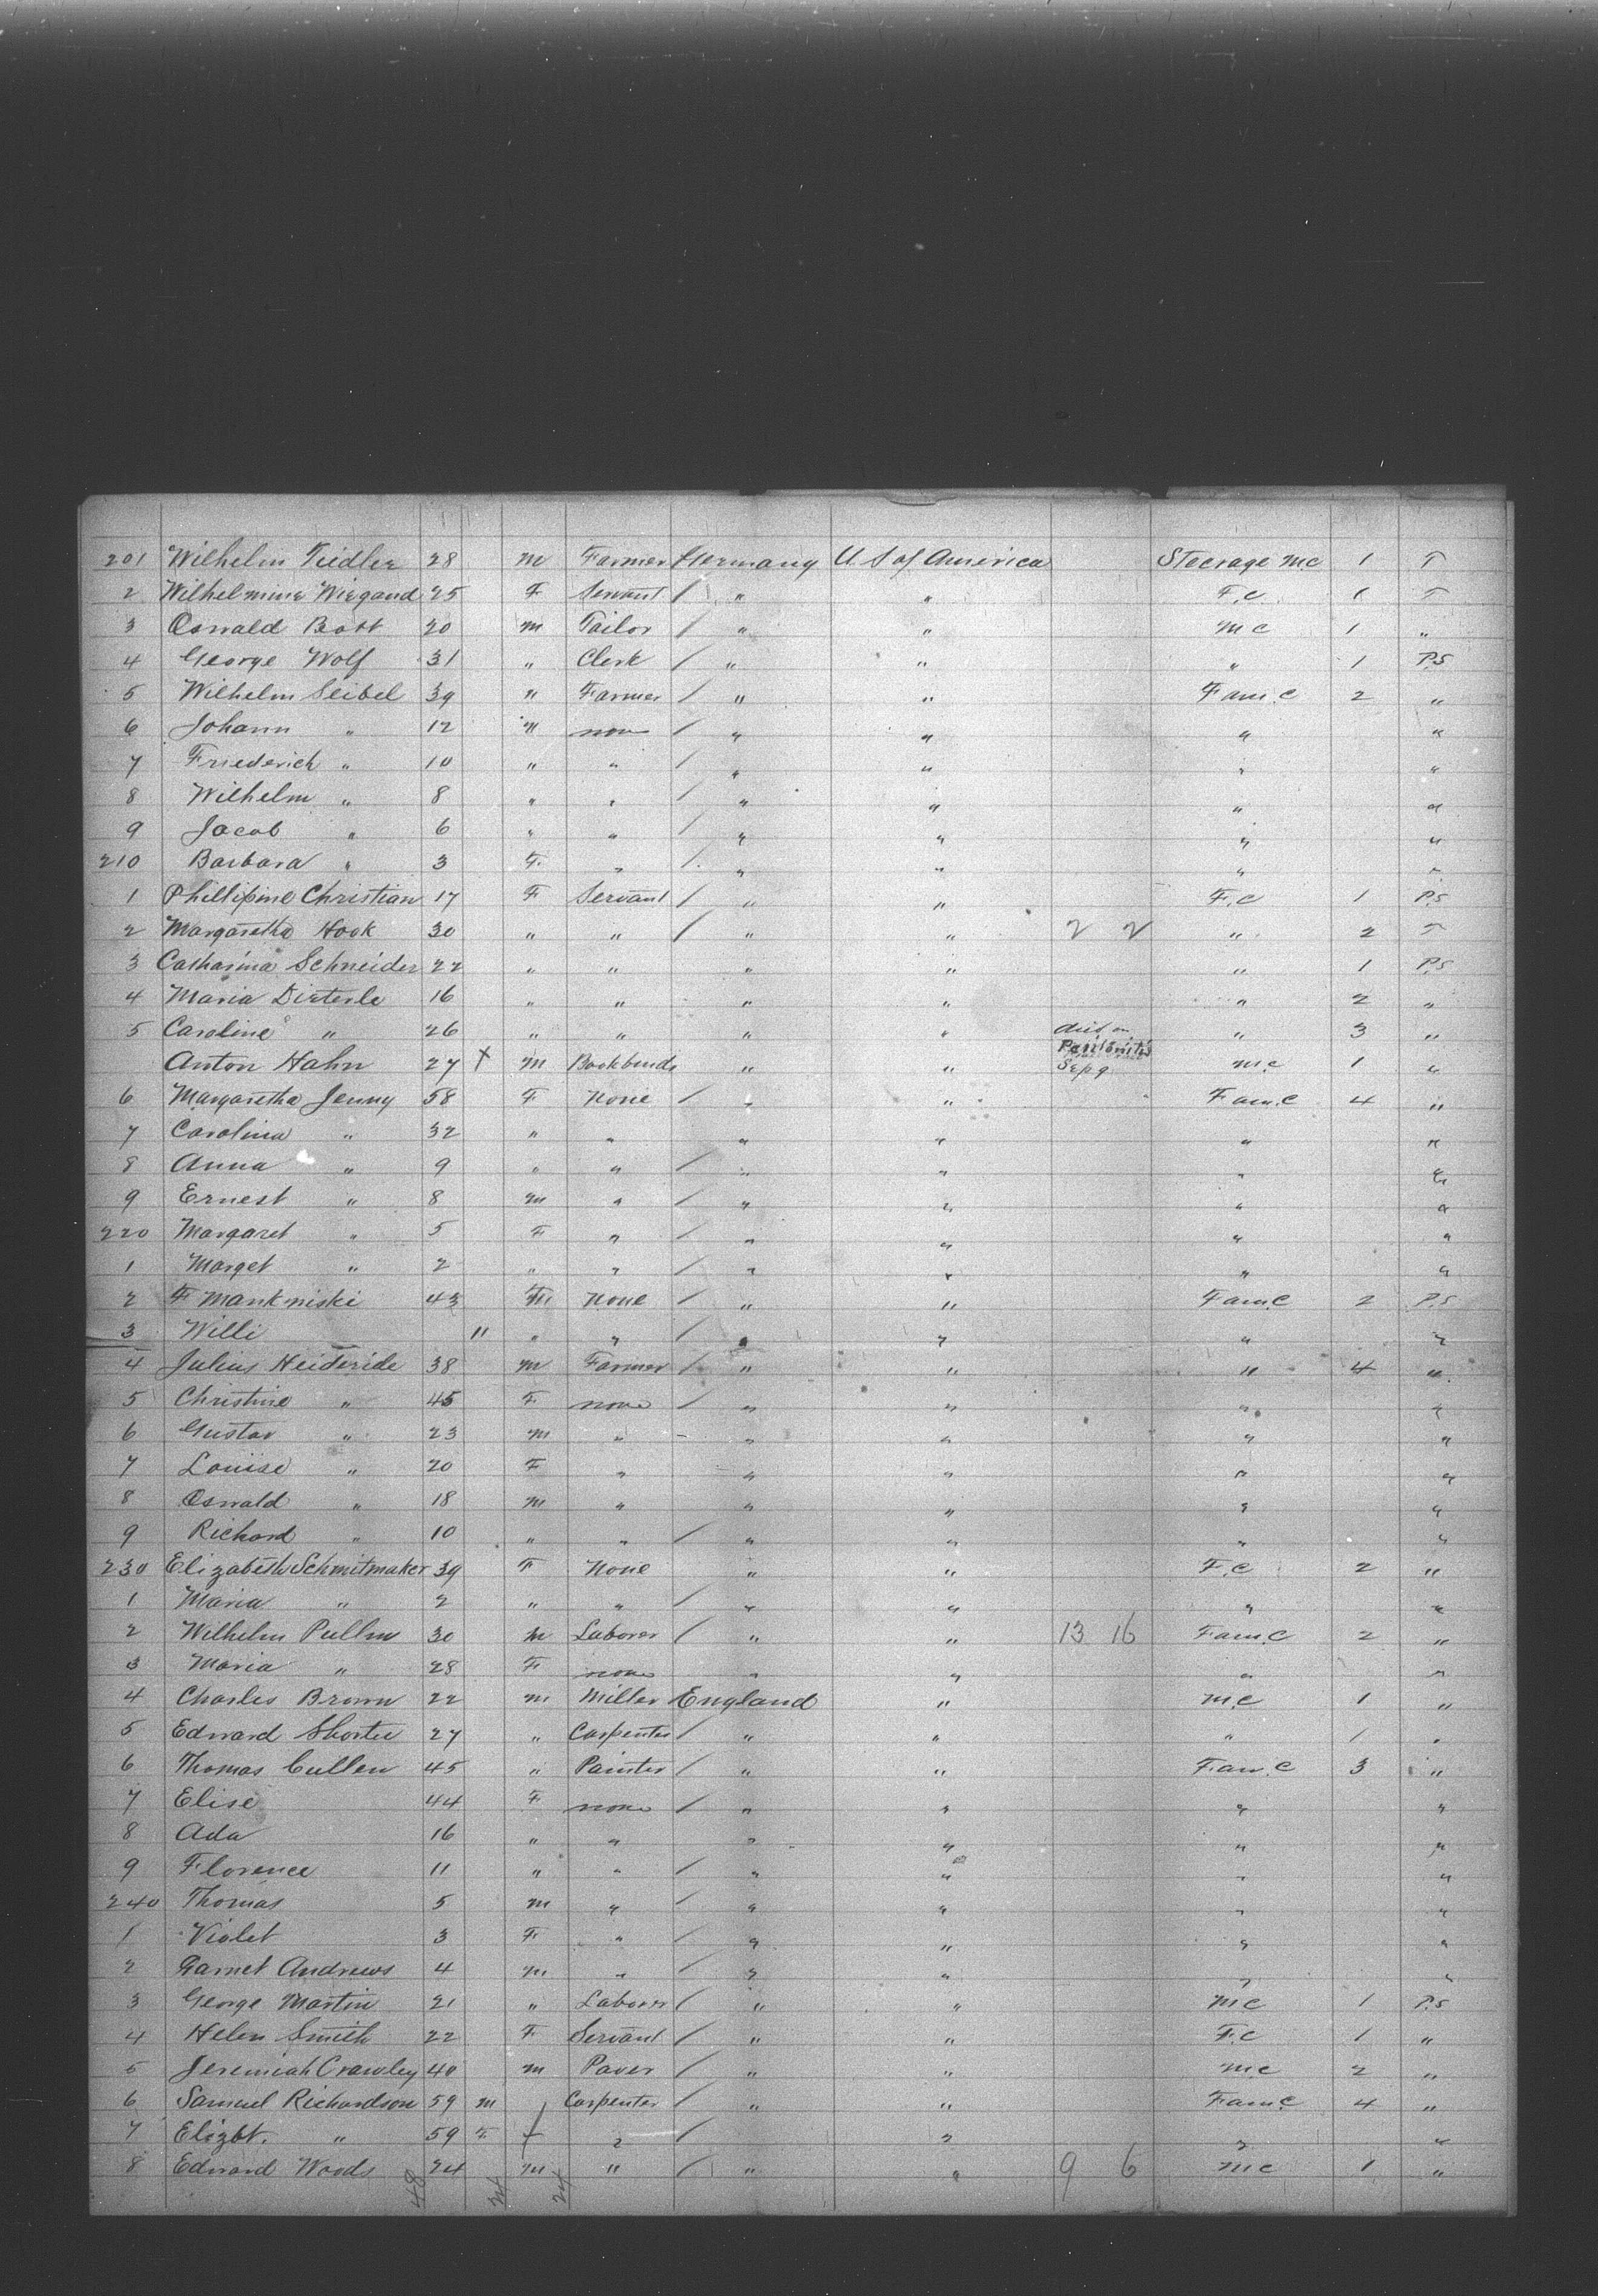 201 Wilhelm Fiedler 28 M Farmer Germany U S of America Steerage MC 1 T
2 Wilhelmine Wiegand 25 F Servant / " " F.C. 1 T
3 Oswald Bott 20 M Tailor / " " M C 1 "
4 George Wolf 31 " Clerk / " " " 1 P.S
5 Wilhelm Seibel 39 " Farmer / " " Fam. C 2 "
6 Johann " 12 " none / " " " "
7 Friederich " 10 " " / " " " "
8 Wilhelm " 8 " " / " " " "
9 Jacob " 6 " " / " " " "
210 Barbara " 3 F. " / " " " "
1 Phillipine Christian 17 F Servant / " " F.C 1 P.S
2 Margaretha Hook 30 " " / " " 2 2 " 2 T
3 Catharina Schneider 22 " " " " " 1 P.S
4 Maria Dieterle 16 " " " " " 2 "
5 Caroline " 26 " " " " " 3 "
Anton Hahn 27 X M Bookbinder " " died on Sep 9 M.C 1 "
6 Margaretha Jenny 58 F None / " " Fam. C 4 "
7 Carolina " 32 " " " " " "
8 Anna " 9 " " / " " " "
9 Ernest " 8 M " / " " " "
220 Margaret " 5 F " / " " " "
1 Marget " 2 " " / " " " "
2 F Mankniski 43 M None / " " Fam. C 2 P.S
3 Willi 11 " " / " " " "
4 Julius Heideride 38 M Farmer / " " " 4 "
5 Christine " 45 F none / " " " "
6 Gustav " 23 M " - " " " "
7 Louise " 20 F " " " " "
8 Oswald " 18 M " " " " "
9 Richard " 10 " " / " " " "
230 Elizabeth Schmitmaker 39 F None " " F.C 2 "
1 Maria " 2 " " / " " " "
2 Wilhelm Pullm 30 M Laborer / " " 13 16 Fam. C 2 "
3 Maria " 28 F none " " " "
4 Charles Brown 22 M Miller England " M C 1 "
5 Edward Shorter 27 " Carpenter / " " " 1 "
6 Thomas Cullen 45 " Painter / " " Fam. C 3 "
7 Elise 44 F none / " " " "
8 Ada 16 " " " " " "
9 Florence 11 " " / " " " "
240 Thomas 5 M " / " " " "
1 Violet 3 F " / " " " "
2 Garnet Andrews 4 M " / " " " "
3 George Martin 21 " Laborer / " " M C 1 P.S
4 Helen Smith 22 F Servant / " " F.C 1 "
5 Jeremiah Crawley 40 M Paver / " " M C 2 "
6 Samuel Richardson 59 M Carpenter / " " Fam. C 4 "
7 Elizbt. " 59 F " / " " "
8 Edward Woods 24 M " / " " 9 6 M C 1 "
48 24 24